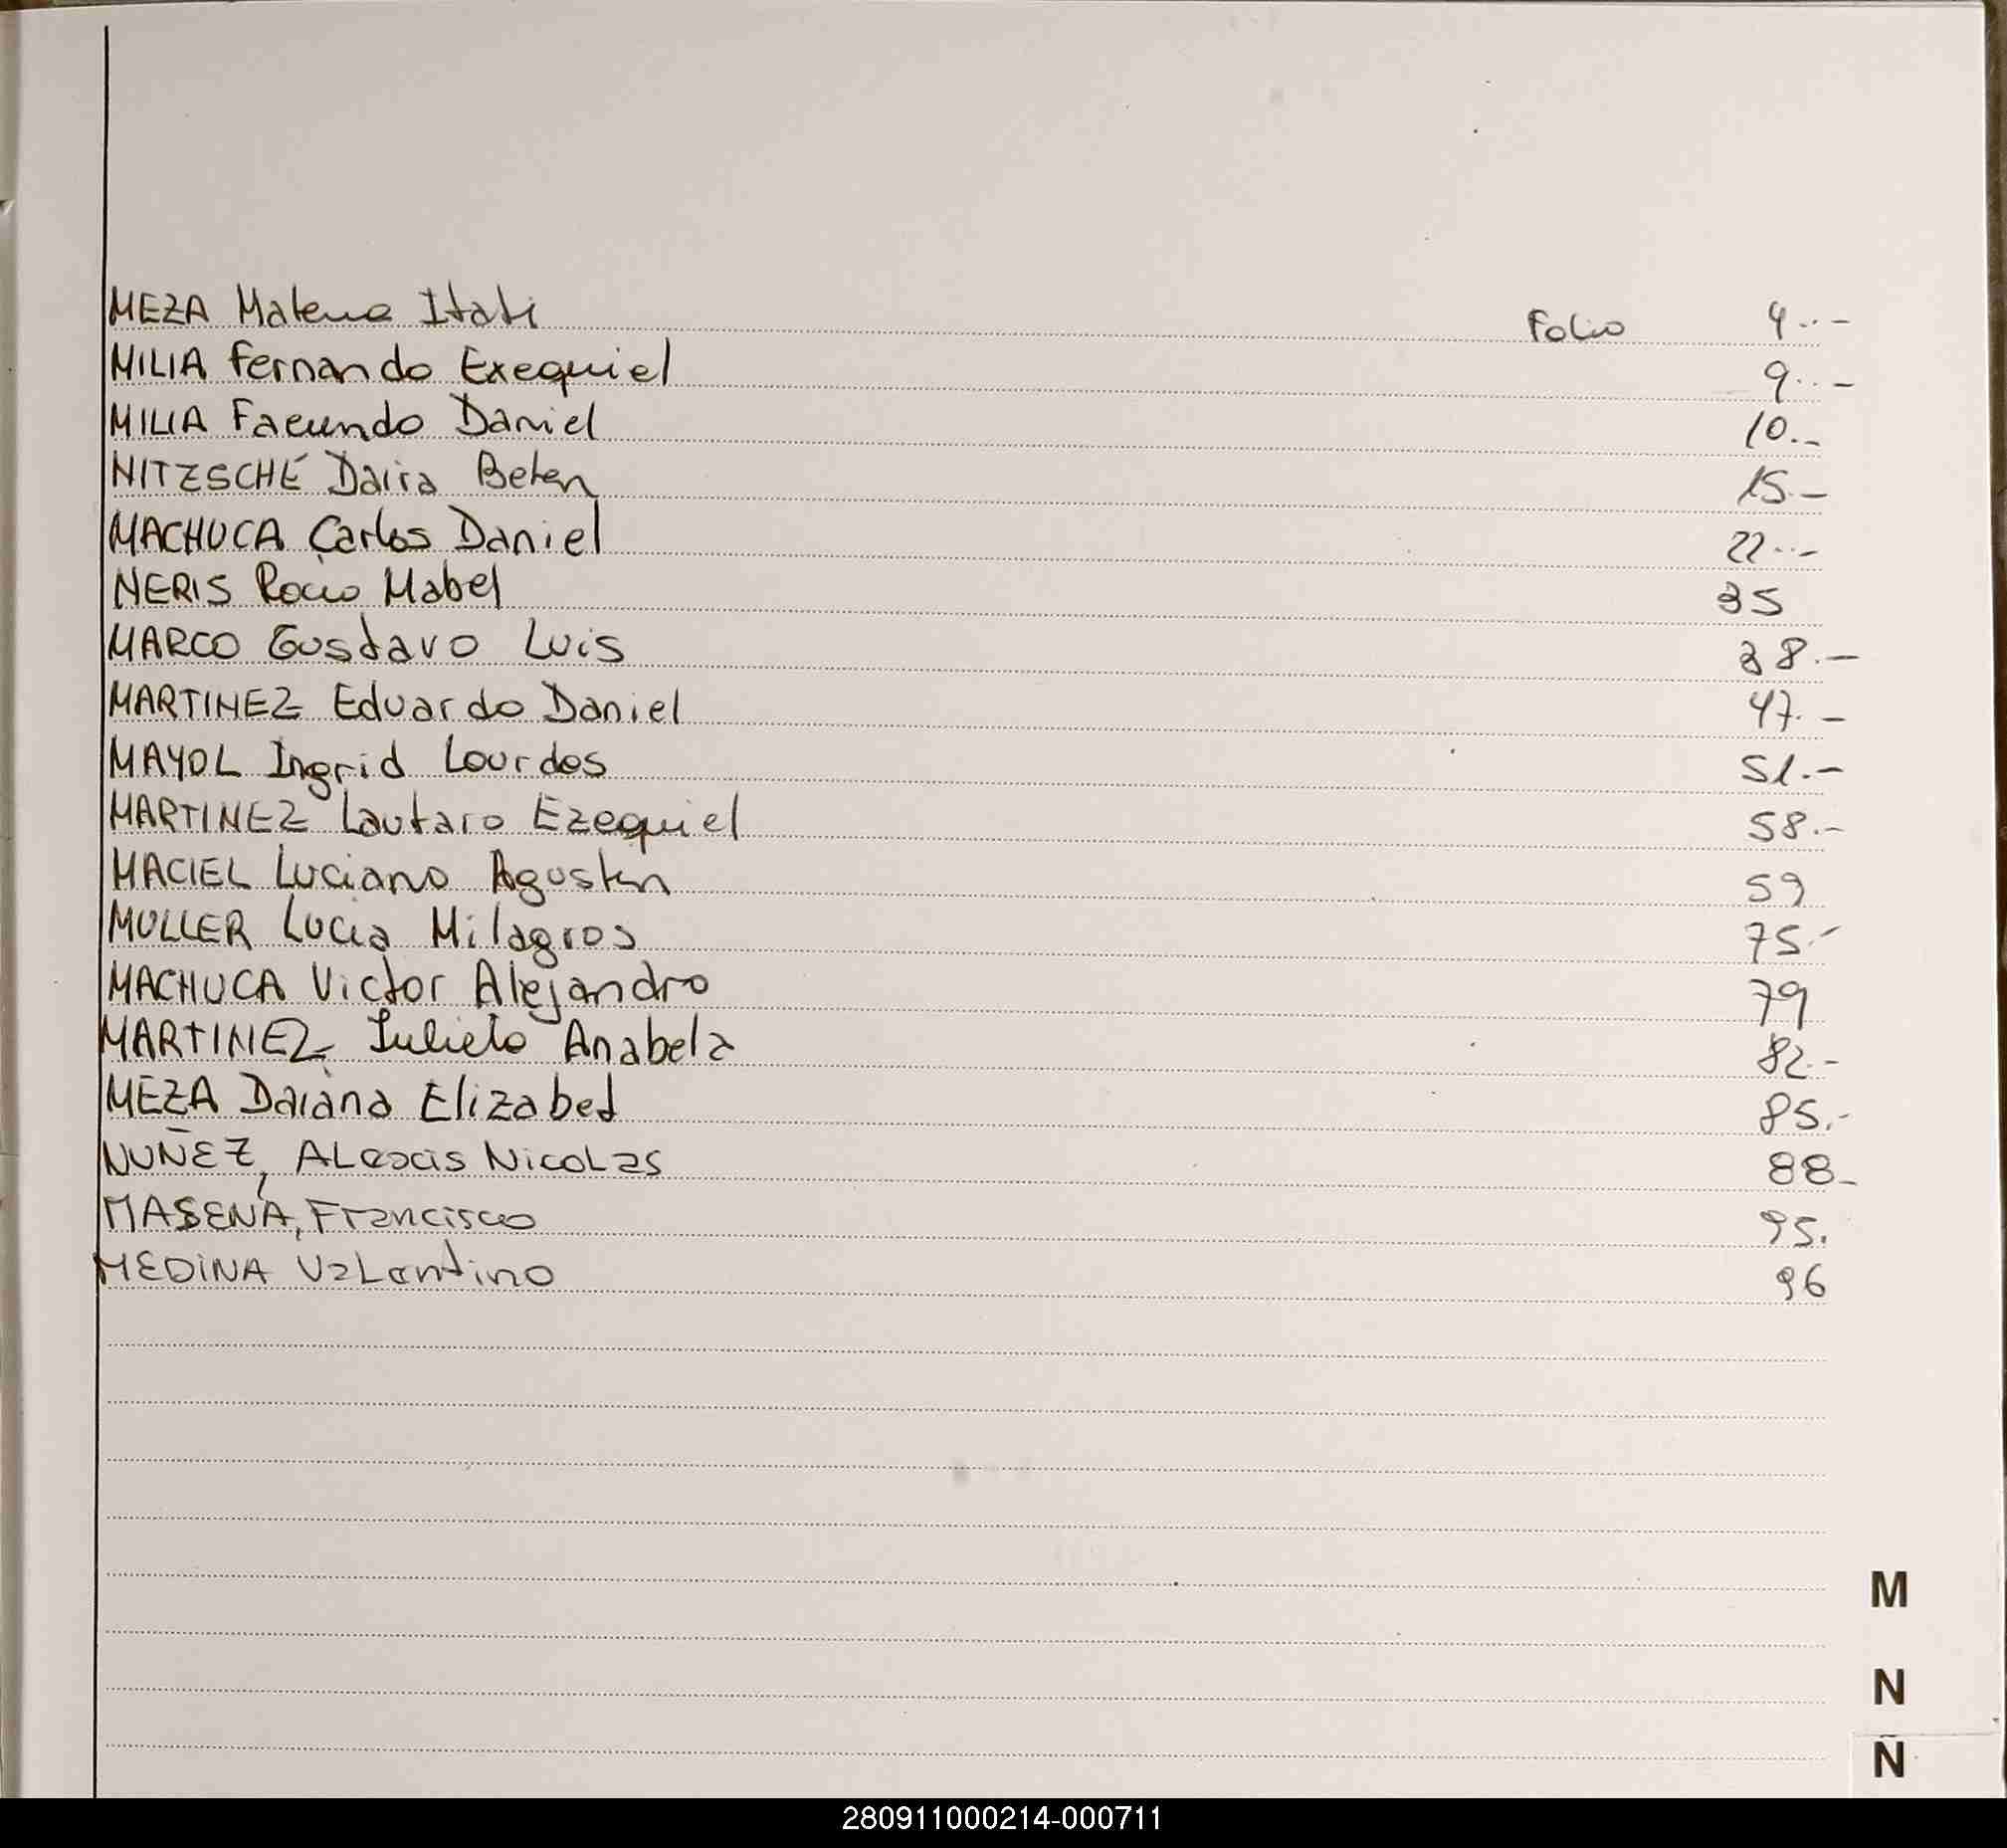 MEZA Malena Itati Folio 4..-
MILIA Fernando Exequiel 9..-
MILIA Facundo Daniel 10.-
NITZSCHE Daira Belen 15.-
MACHUCA Carlos Daniel 22..-
NERIS Rocio Mabel 35
MARCO Gustavo Luis 38.-
MARTINEZ Eduardo Daniel 47.-
MAYOL Ingrid Lourdes 51.-
MARTINEZ Lautaro Ezequiel 58.-
MACIEL Luciano Agustin 59
MULLER Lucia Milagros 75.-
MACHUCA Victor Alejandro 79
MARTINEZ Julieta Anabela 82.-
MEZA Daiana Elizabet 85.-
NUÑEZ, ALexis NicoLas 88-
MASENA, Francisco 95.
MEDiNA VaLentino 96
M
N
Ñ
280911000214-000711